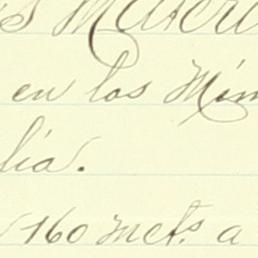 s Mater
en los Min
lia.
160 mets. a